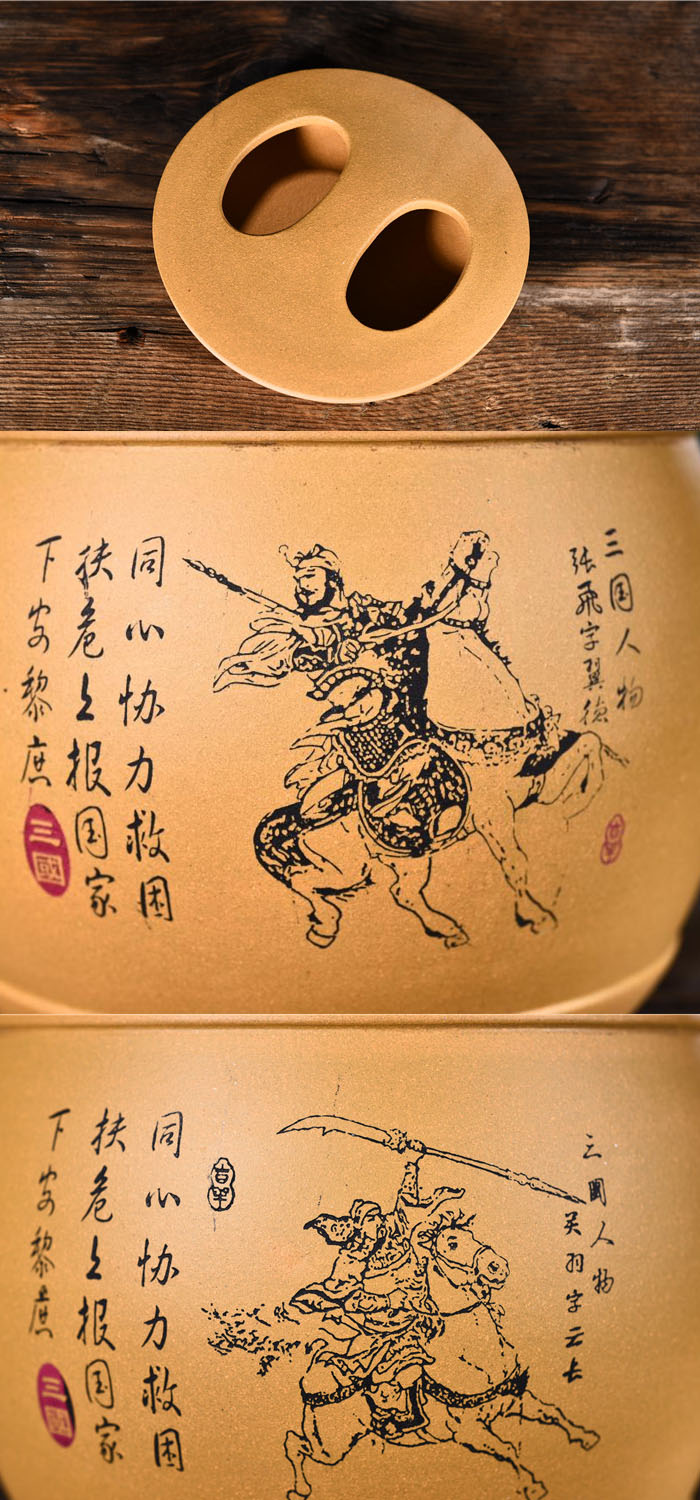 三国人物
张飛字翼德
同心协力救困
扶危上报国家
下安黎庶
三國
三國人物
关羽字云长
吉羊
同心协力救困
扶危上报国家
下安黎庶
三國